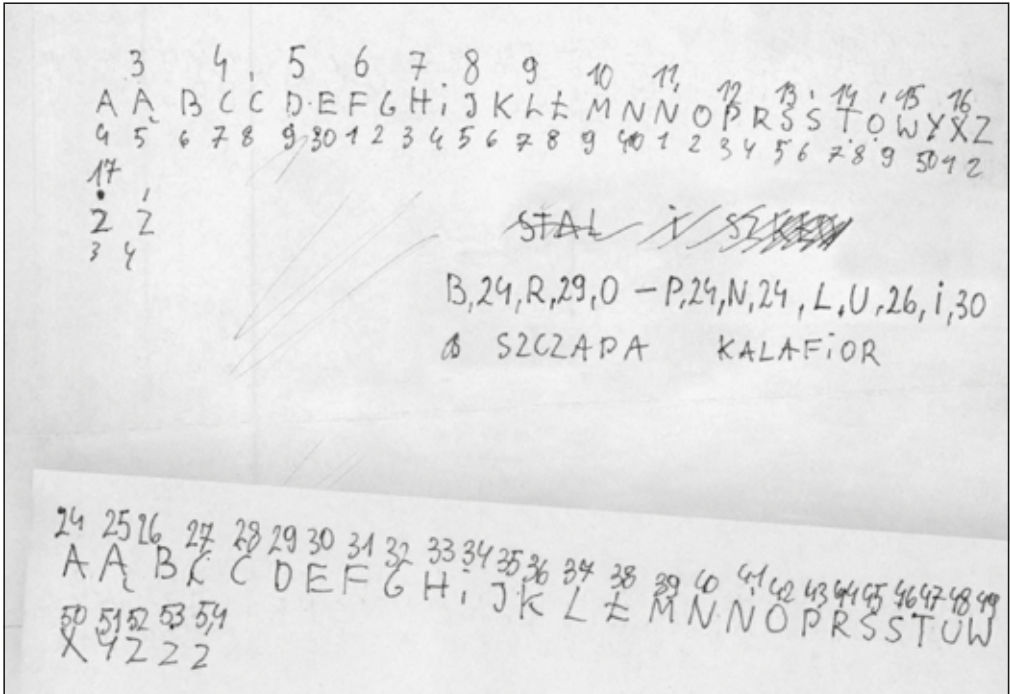 3 4 5 6 7 8 9 10 11 12 13 14 15 16
A Ą B C Ć D E F G H i J K L Ł M N Ń O P R S Ś T Ó W Y X Z
4 5 6 7 8 9 30 1 2 3 4 5 6 7 8 9 40 1 2 3 4 5 6 7 8 9 50 1 2
17
Ż Ź
3 4
STAL i
B,24,R,29,O – P,24,N,24,L,U,26,i,30
SZCZAPA KALAFiOR
24 25 26 27 28 29 30 31 32 33 34 35 36 37 38 39 40 41 42 43 44 45 46 47 48 49
A Ą B C Ć D E F G H i J K L Ł M N Ń O P R S Ś T U W
50 51 52 53 54
X Y Z Ż Ź